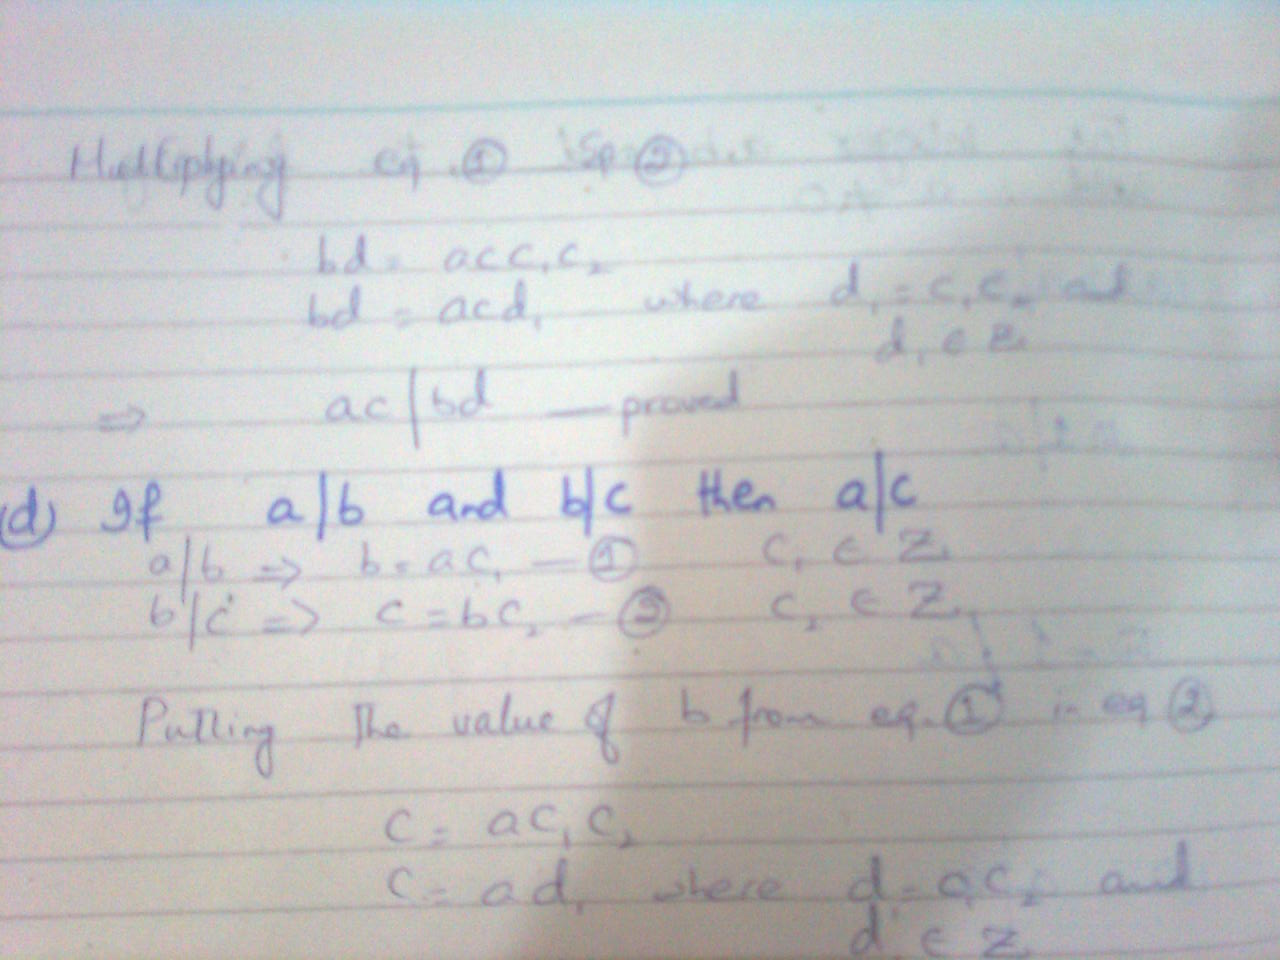 Multiplying eq ① & ②
bd = acc₁c₂
bd = acd₁ where d₁ = c₁c₂ and
d₁ ∈ Z
⇒ ac|bd — proved
(d) If a|b and b|c then a|c
a|b ⇒ b = ac₁ — ① c₁ ∈ Z
b|c ⇒ c = bc₂ — ② c₂ ∈ Z
Putting the value of b from eq. ① in eq ②
c = ac₁c₂
c = ad₁ where d = c₁c₂ and
d ∈ Z